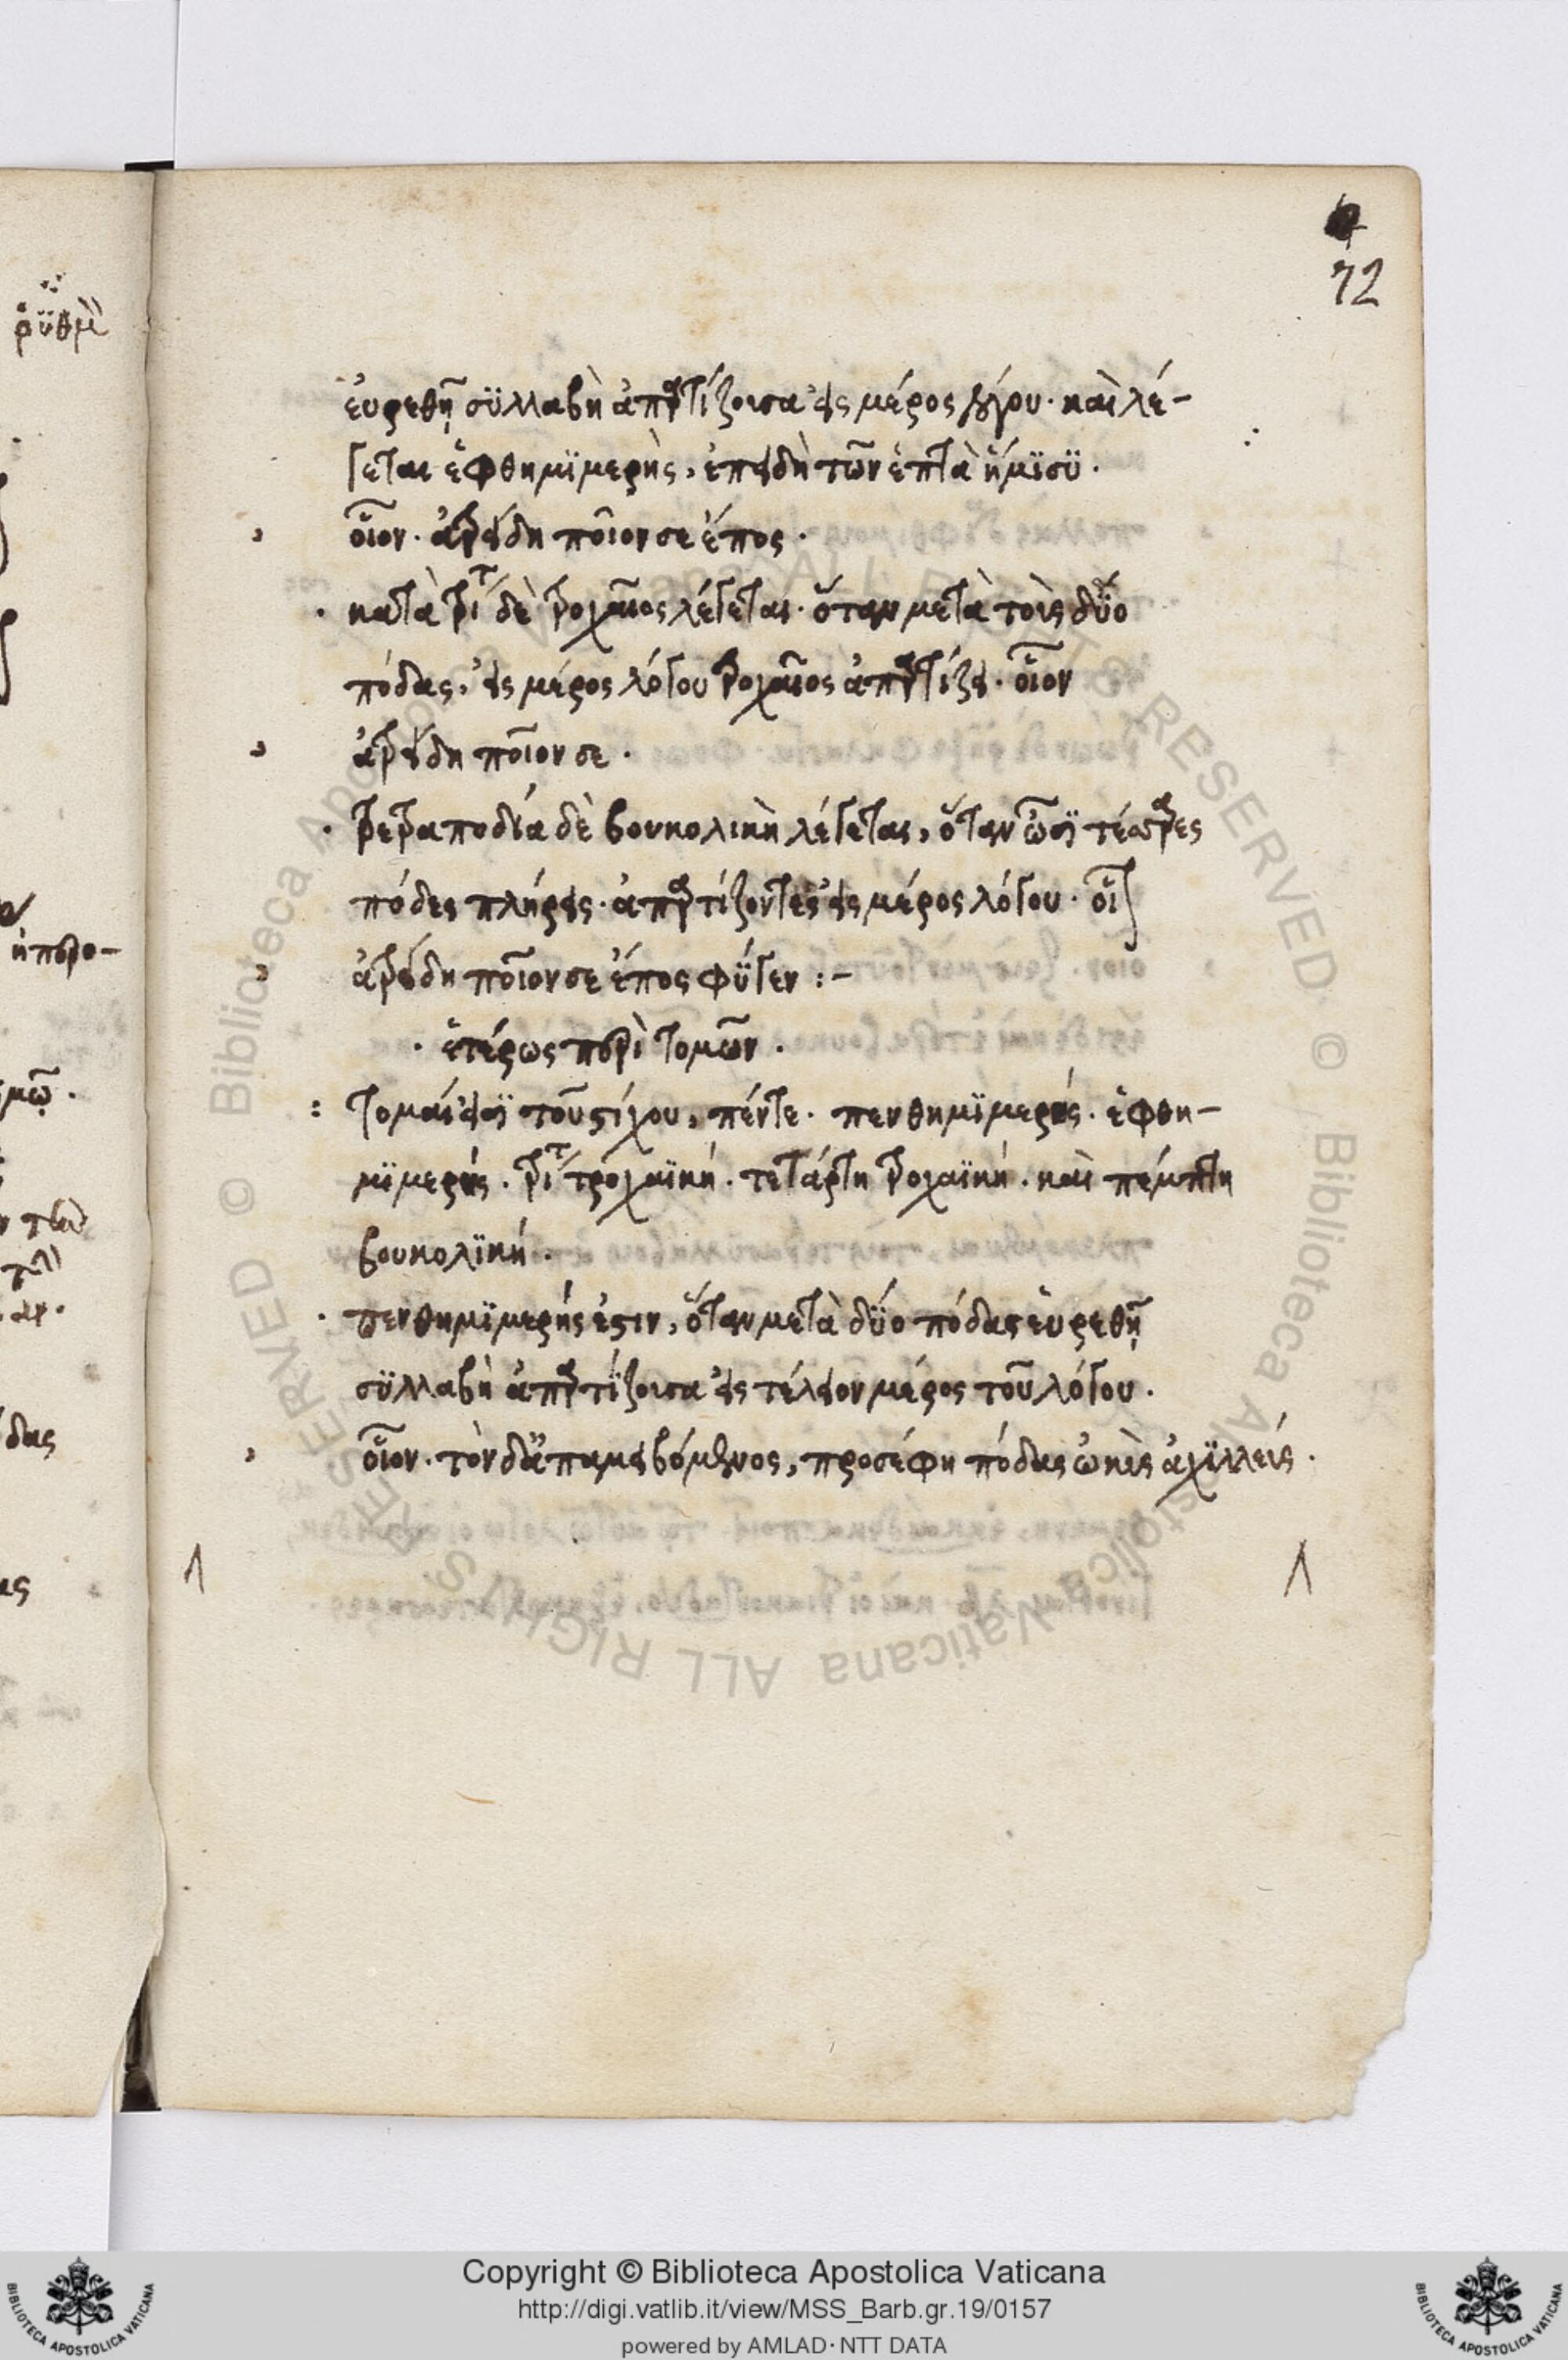 72
εὑρεθῆ συλλαβὴ ἀπαρτίζουσα εἰς μέρος λόγου· καὶ λέ-
γεται ἑφθημϊμερὴς, ἐπειδὴ τῶν ἑπτὰ ἥμϊσϋ.
οἷον· ἀτρείδη ποῖον σε ἔπος.
κατὰ τρίτ δὲ τροχαῖος λέγεται· ὅταν μετὰ τοὺς δύο
πόδας, εἰς μέρος λόγου τροχαῖος ἀπαρτίζει· οἷον
ἀτρείδη ποῖον σε.
τετραποδία δὲ βουκολικὴ λέγεται, ὅταν ὦσϊ τέσσαρες
πόδες πλήρεις· ἀπαρτίζοντες εἰς μέρος λόγου· οἷ
ἀτρείδη ποῖον σε ἔπος φύγεν :-
ἑτέρως περὶ τομῶν.
τομαί εἰσϊ τοῦ στίχου, πέντε. πενθημϊμερής. ἑφθη-
μϊμερής. τρίτ τροχαϊκή. τετάρτη τροχαϊκή. καὶ πέμπτη
βουκολϊκή.
πενθημϊμερής ἐστιν, ὅταν μετὰ δύο πόδας εὑρεθῆ
συλλαβὴ ἀπαρτίζουσα εἰς τέλειον μέρος τοῦ λόγου.
οἷον· τὸν δἀπαμειβόμενος, προσέφη πόδας ὠκὺς ἀχϊλλεύς.
Copyright © Biblioteca Apostolica Vaticana
http://digi.vatlib.it/view/MSS_Barb.gr.19/0157
powered by AMLAD · NTT DATA